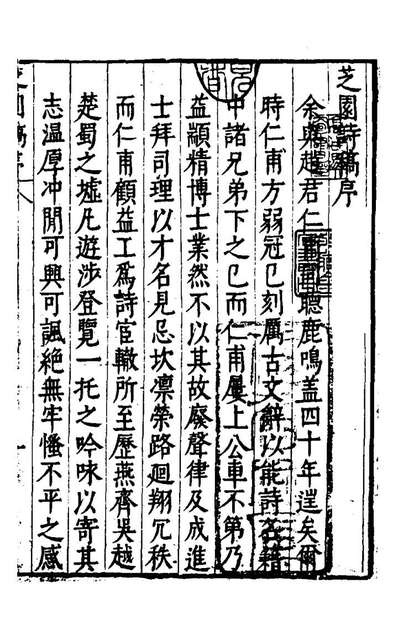 芝園詩稿序
余與趙君仁甫同聽鹿鳴蓋四十年逕矣爾
時仁甫方弱冠已刻厲古文辭以能詩名籍
中諸兄弟下之已而仁甫屢上公車不第乃
益顓精博士業然不以其故廢聲律及成進
士拜司理以才名見忌坎凛榮路迴翔冗秩
而仁甫顧益工爲詩宦轍所至歷燕齊吳越
楚蜀之墟凡遊涉登覽一托之吟咏以寄其
志溫厚冲閒可興可諷絕無牢慅不平之感